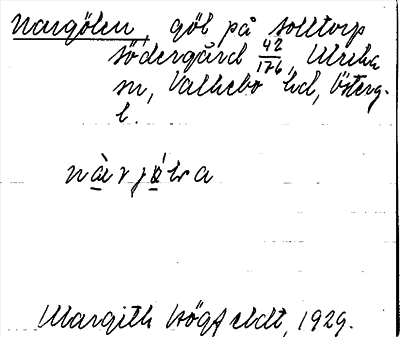 Nargölen, göl på Solltorp
södergård 42/176, Ulrika
sn, Valkebo hd, Österg.
l.
nàrjö́lra
Margith Högfeldt, 1929.